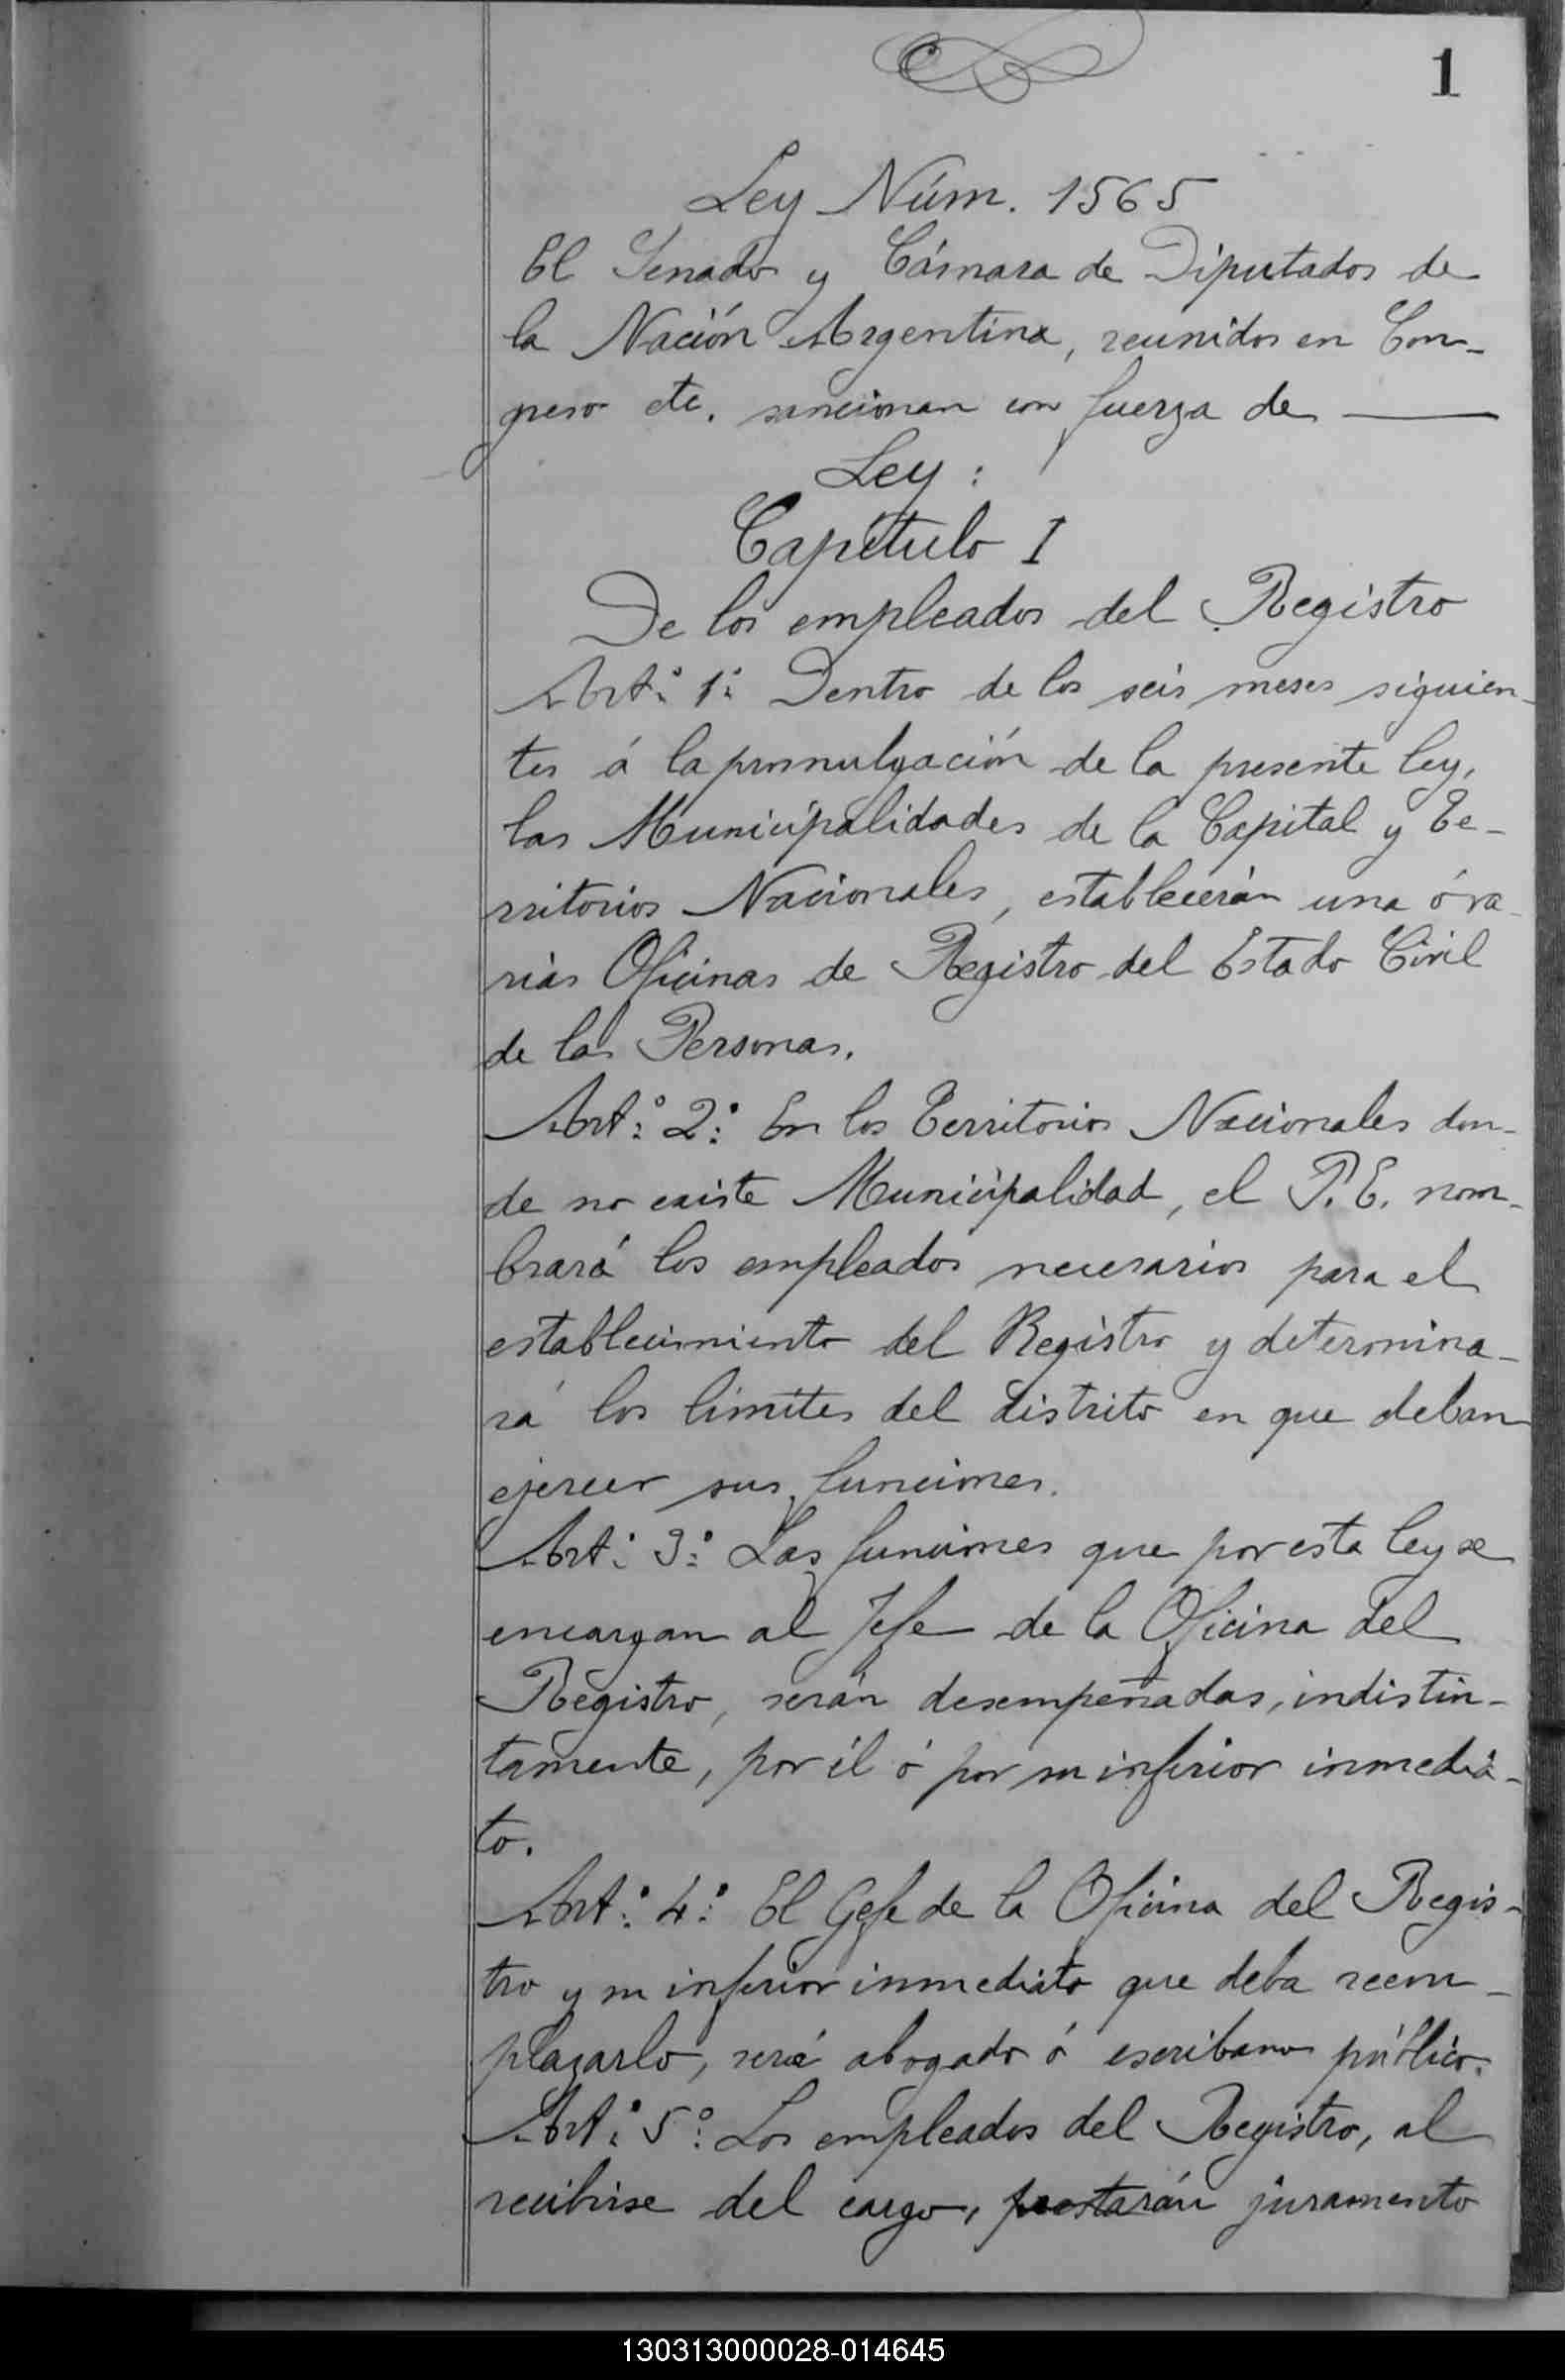 1
Ley Núm. 1565
El Senado y Cámara de Diputados de
la Nación Argentina, reunidos en Con-
greso etc. sancionan con fuerza de
Ley:
Capítulo I
De los empleados del Registro
Art.º 1.º Dentro de los seis meses siguien-
tes á la promulgación de la presente ley,
las Municipalidades de la Capital y Te-
rritorios Nacionales, establecerán una ó va-
rias Oficinas de Registro del Estado Civil
de las Personas.
Art.º 2.º En los Territorios Nacionales don-
de no existe Municipalidad, el P. E. nom-
brará los empleados necesarios para el
establecimiento del Registro y determina-
rá los límites del distrito en que deban
ejercer sus funciones.
Art.º 3.º Las funciones que por esta ley se
encargan al Jefe de la Oficina del
Registro, serán desempeñadas, indistin-
tamente, por él ó por su inferior inmedia-
to.
Art.º 4.º El Gefe de la Oficina del Regis-
tro y su inferior inmediato que deba reem-
plazarlo, será abogado ó escribano público.
Art.º 5.º Los empleados del Registro, al
recibirse del cargo, prestarán juramento
130313000028-014645